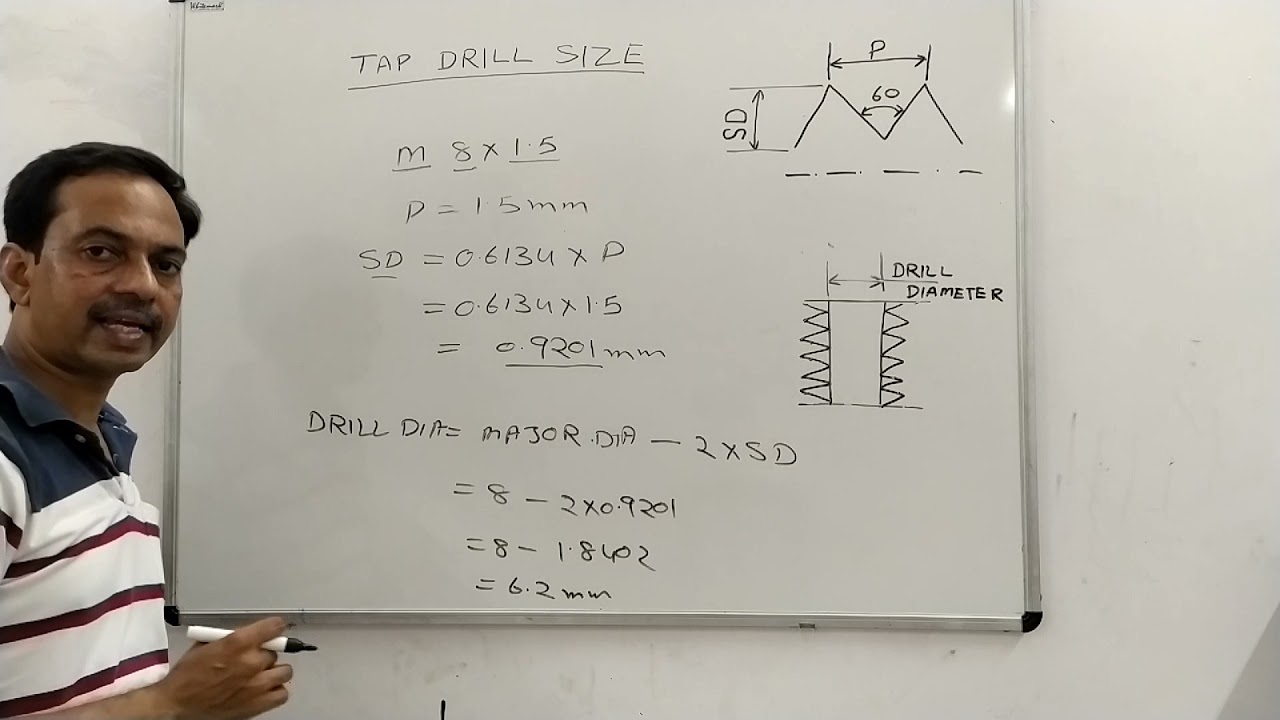 Whitemark
TAP DRILL SIZE
M 8 X 1.5
P = 1.5 mm
SD = 0.6134 X P
= 0.6134 X 1.5
= 0.9201 mm
DRILL DIA = MAJOR.DIA - 2 X SD
= 8 - 2 X 0.9201
= 8 - 1.8402
= 6.2 mm
P
60
SD
DRILL
DIAMETER